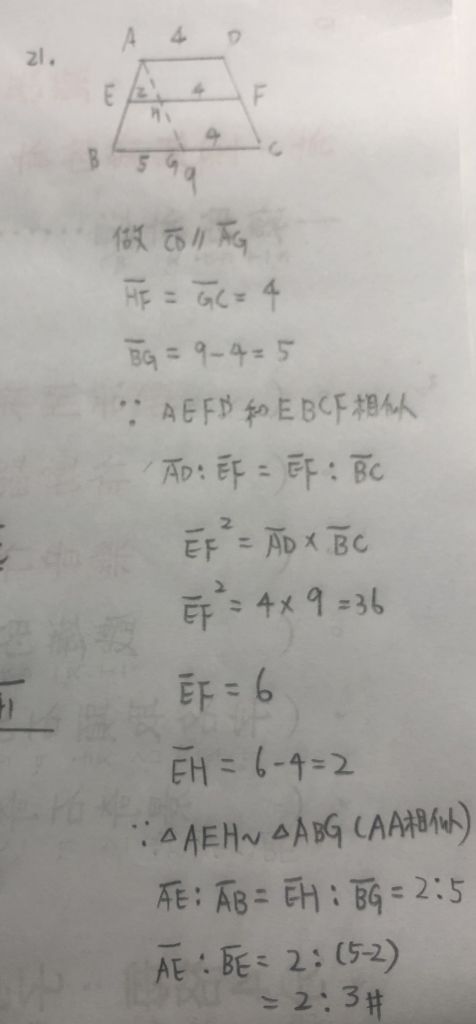 21.
A 4 D
E 2 4 F
H
4
B 5 G C
9
做 C̅D̅ // A̅G̅
H̅F̅ = G̅C̅ = 4
B̅G̅ = 9-4 = 5
∵ AEFD 和 EBCF 相似
A̅D̅ : E̅F̅ = E̅F̅ : B̅C̅
E̅F̅² = A̅D̅ × B̅C̅
E̅F̅² = 4 × 9 = 36
E̅F̅ = 6
E̅H̅ = 6-4 = 2
∵ △AEH ~ △ABG (AA相似)
A̅E̅ : A̅B̅ = E̅H̅ : B̅G̅ = 2 : 5
A̅E̅ : B̅E̅ = 2 : (5-2)
= 2 : 3 #